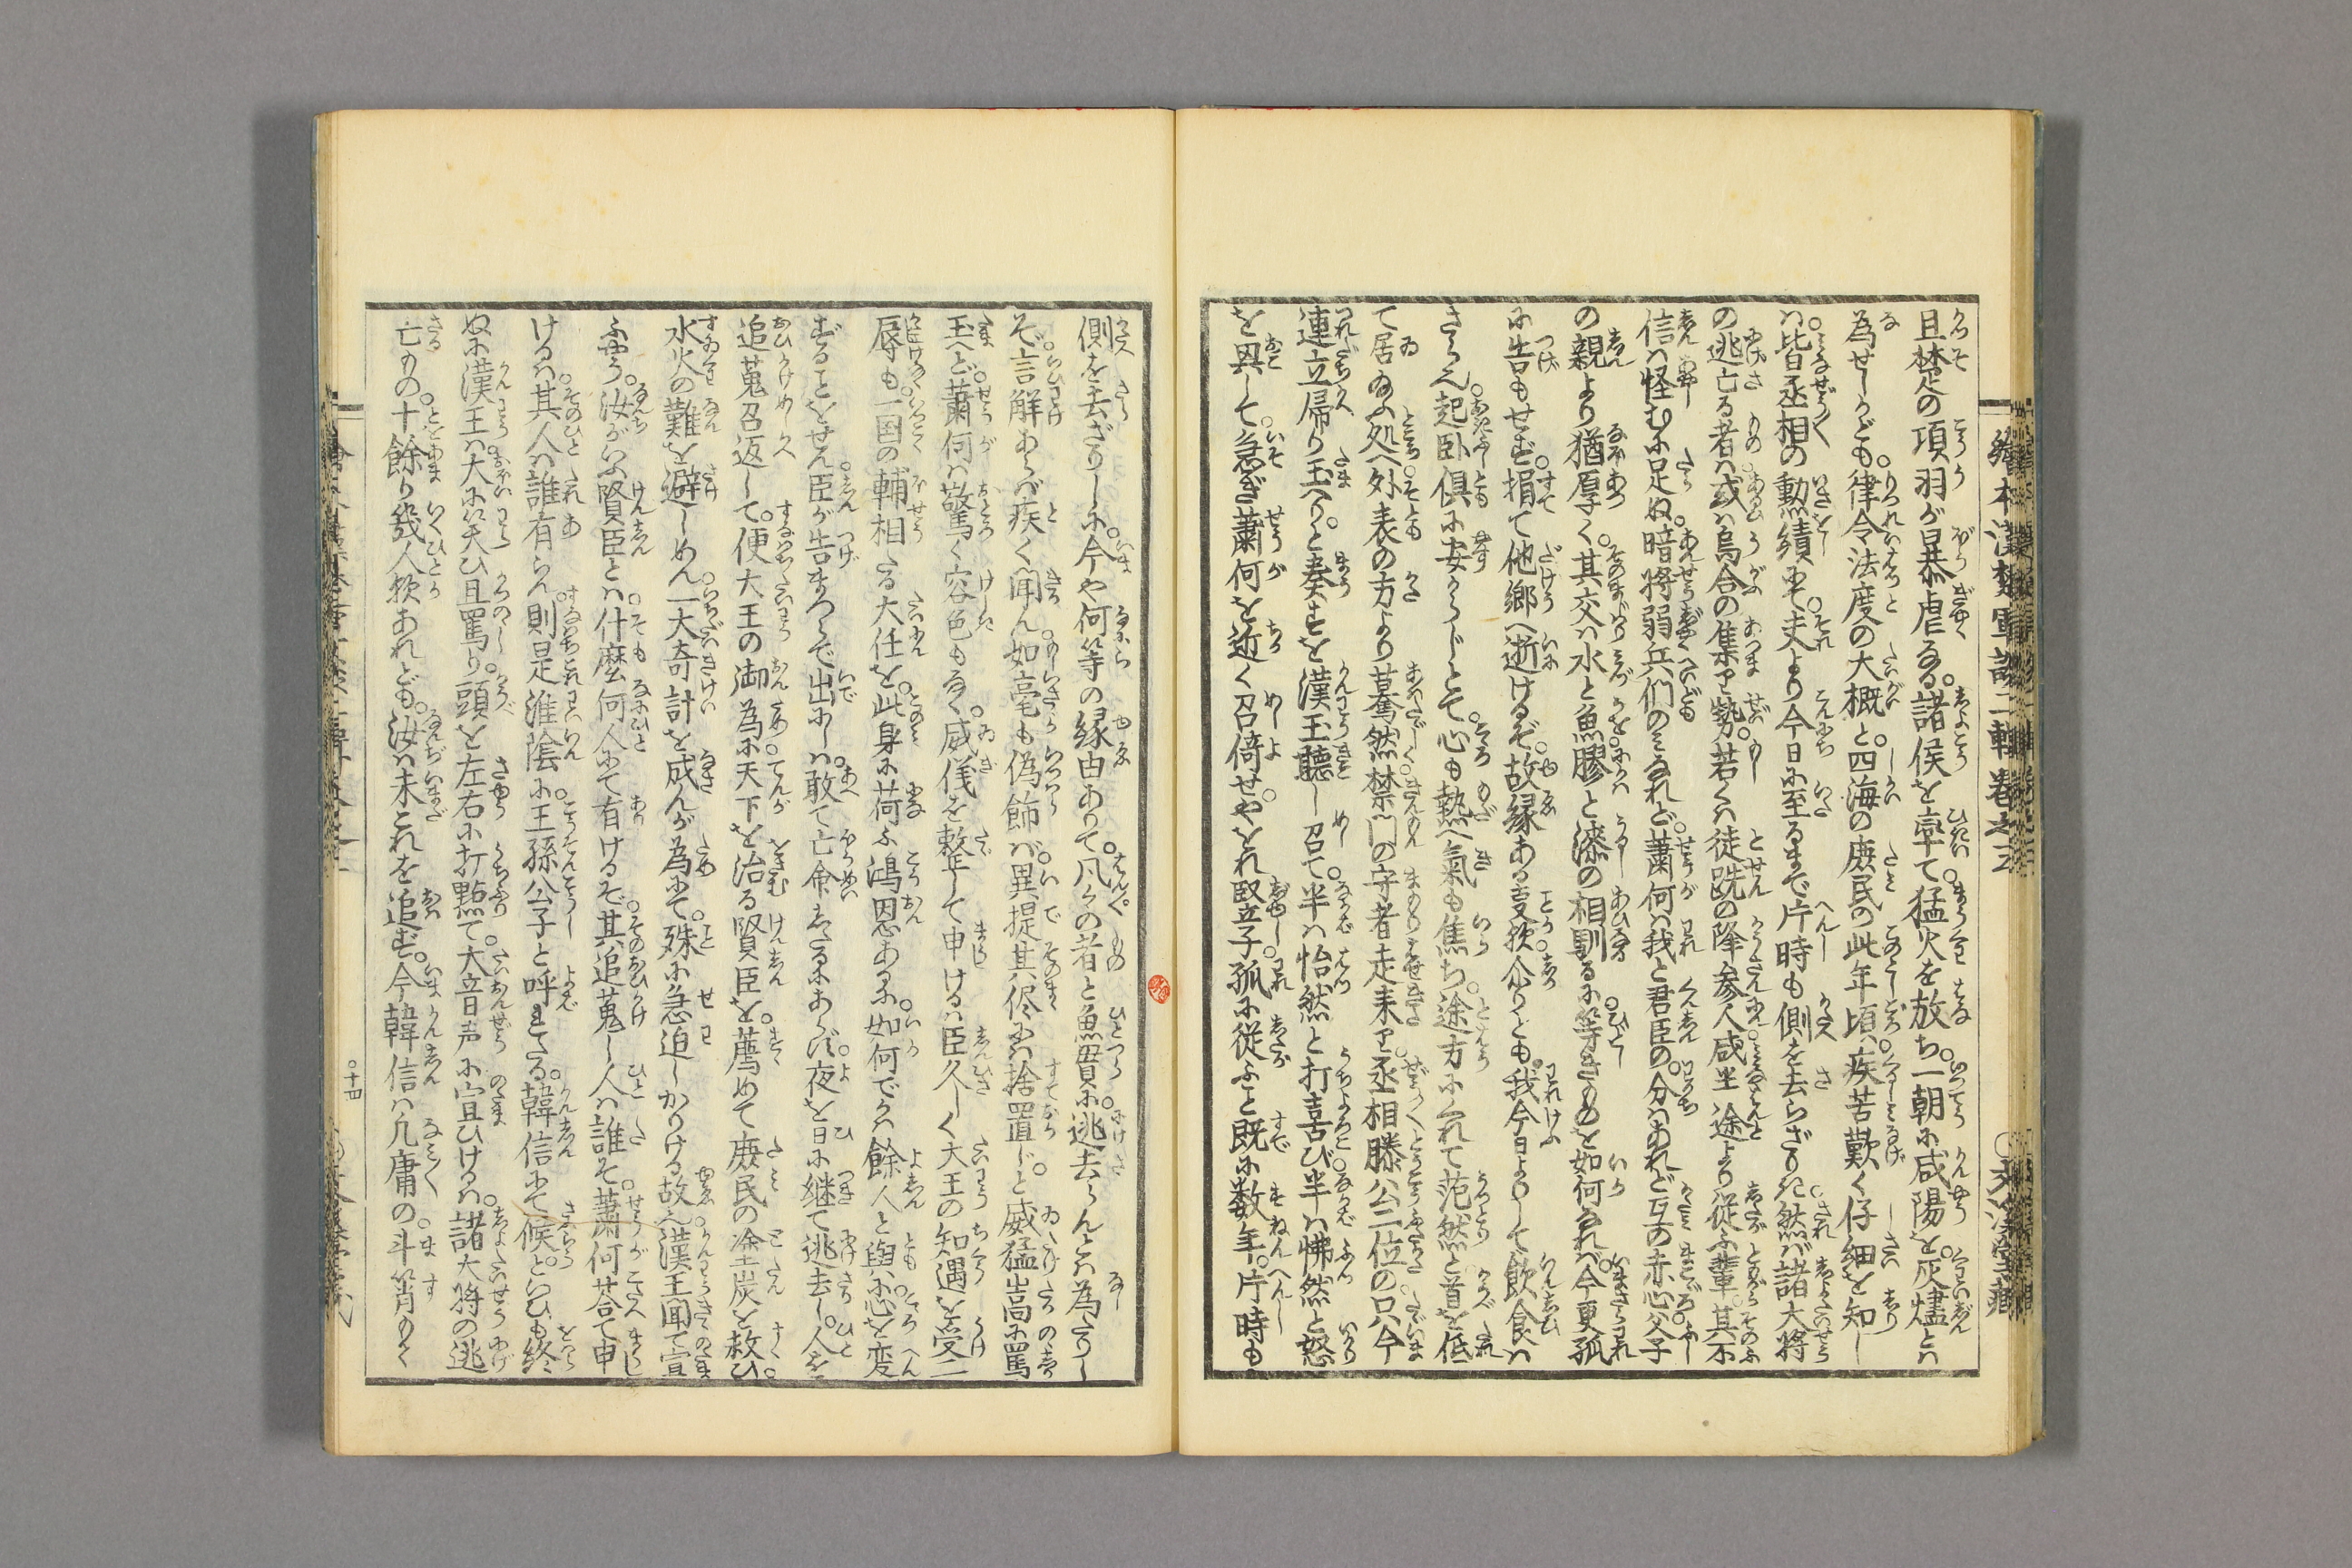 且楚の項羽が暴虐なる。諸侯を宰て。猛火を放ち。一朝に咸陽を。灰燼とハ
為せしかども。律令法度の大概と。四海の庶民の此年頃。疾苦歎く仔細を知し
ハ。皆丞相の勲績にて。夫より今日に至るまで片時も側を去らざりき。然バ諸大将
の逃亡る者ハ。或ハ烏合の集り勢。若くハ徒跣の降参人。咸坐途より従ふ輩。其不
信ハ怪むに足ぬ。暗将弱兵們のミなれど。蕭何ハ我と君臣の。分ハあれど互の赤心。父子
の親より猶厚く。其交ハ水と魚。膠と漆の相馴るに。等きものを如何なれバ。今更孤
に告もせず。捐て他郷へ逝けるぞ。故縁ある事歟。介りとも。我今日よりして飲食ハ
さら也。起臥倶に安からじとて。心も熱へ氣も焦ち。途方にくれて茫然と首を低
て居給ふ処へ。外表の方より驀然。禁門の守者走来り。丞相滕公二位の。只今
連立帰り玉へり。と奏すを漢王聴し召て。半ハ怡然と打喜び。半ハ怫然と怒
を興して。急ぎ蕭何を近く召倚せ。やをれ竪子。孤に従ふと既に数年。片時も
側を去ざりしに。今や何等の縁由ありて。凡々の者と魚貫に。逃去らんとハ為たりし
ぞ。言解あらバ疾く聞ん。如毫も偽飾バ。異提其侭にハ捨置じ。と威猛嵩に罵
玉へど。蕭何ハ驚く容色もなく。威儀を整して申けるハ。臣久しく大王の知遇を受。二
辱も一国の輔相たる大任を。此身に荷ふ鴻恩あるに。如何でかハ餘人と與に。心を変
ずることをせん。臣が告まつらで出にしハ。敢て亡命したるにあらず。夜を日に継て逃去し。人を
追蒐召返して。便大王の御為に。天下を治る賢臣を。薦めて庶民の塗炭を救ひ。
水火の難を避しめん。一大奇計を成んが為にて。殊に急迫しかりける故也。漢王聞て宣
ふやう。汝がいふ賢臣とハ。什麼何人にて有けるぞ。其追蒐し人ハ誰そ。蕭何荅て申
けるハ。其人ハ誰有らん。則是淮陰に。王孫公子と呼れたる。韓信にて候。といひも終
ぬに漢王ハ。大に笑ひ且罵り。頭を左右に打點て。大音声に宣ひけるハ。諸大将の逃
亡もの。十餘り幾人歟あれども。汝ハ未これを追ず。今韓信ハ凡庸の。斗筲のもく
繪本漢楚軍談二輯巻之五
十四